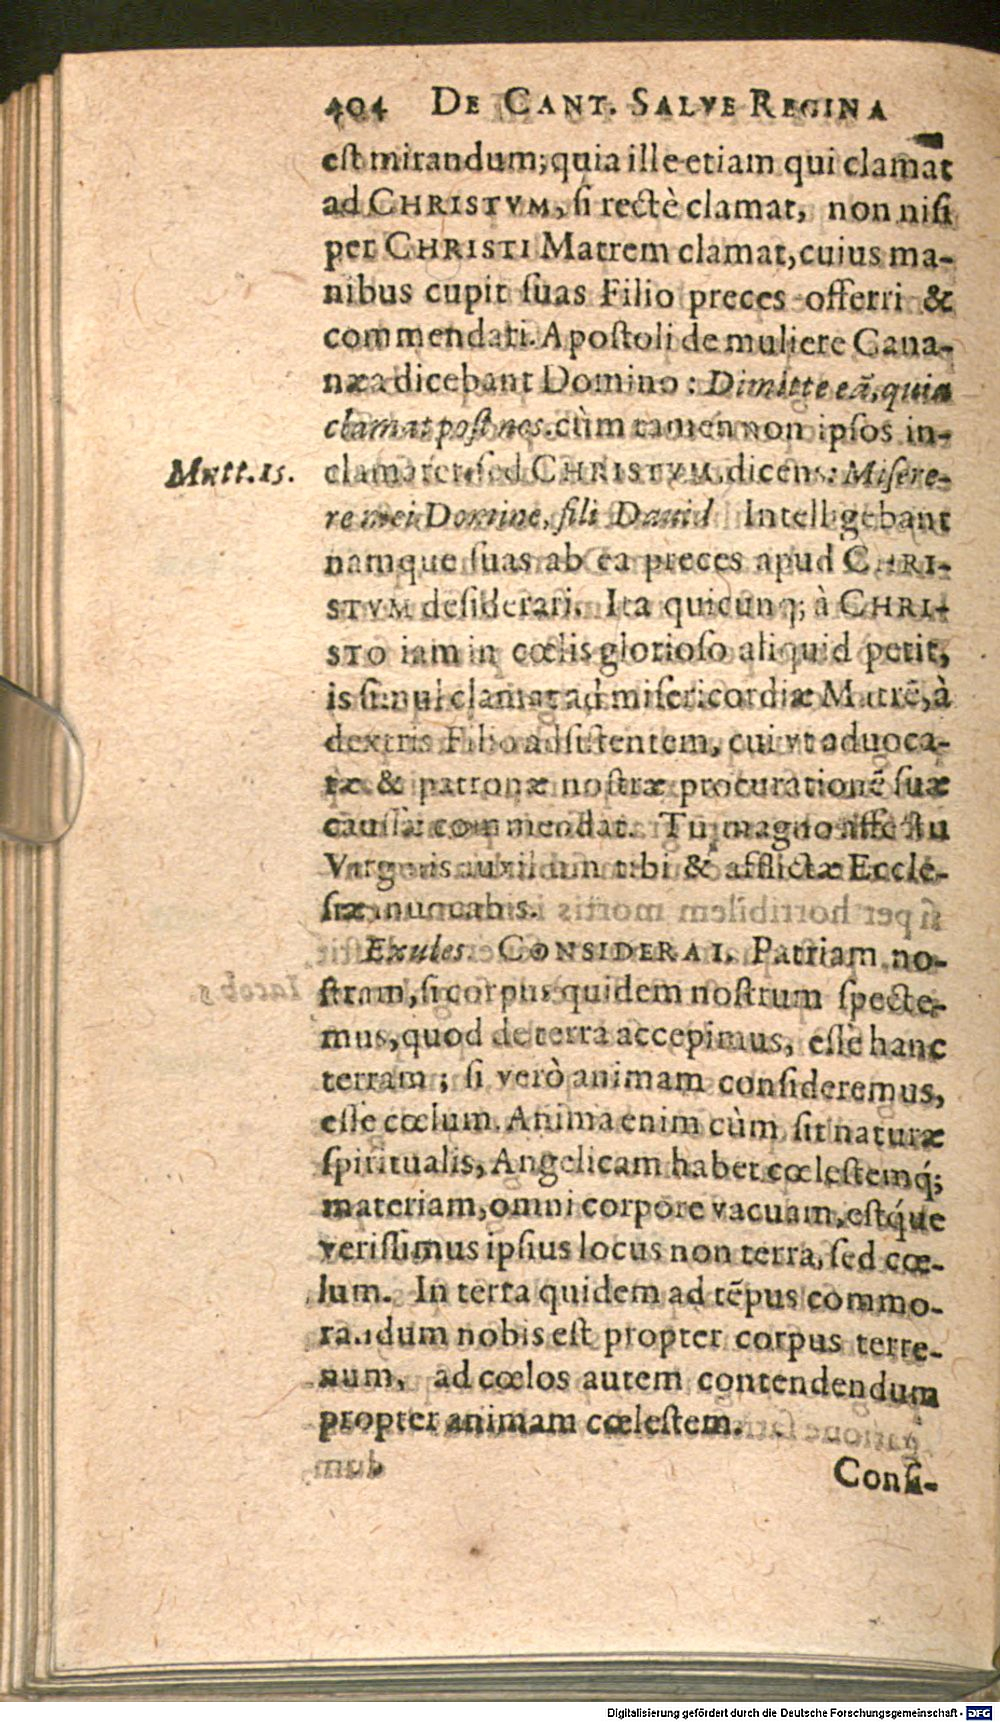 404 DE CANT. SALVE REGINA
est mirandum; quia ille etiam qui clamat
ad CHRISTVM, si rectè clamat, non nisi
per CHRISTI Matrem clamat, cuius ma-
nibus cupit suas Filio preces offerri &
commendari. Apostoli de muliere Cana-
næa dicebant Domino: Dimitte eã, quia
clamat post nos. cùm tamen non ipsos in-
Matt. 15.
clamaret, sed CHRISTVM, dicens: Misere-
re mei Domine, fili Dauid Intelligebant
namque suas ab ea preces apud CHRI-
STVM desiderari. Ita quicunq; à CHRI-
STO iam in cœlis glorioso aliquid petit,
is simul clamat ad misericordiæ Matrẽ, à
dextris Filio adsistentem, cui vt aduoca-
tæ & patronæ nostræ procurationẽ suæ
caussæ commendat. Tu magno affectu
Virginis auxilium tibi & afflictæ Eccle-
siæ inuocabis.
Exules. CONSIDERA I. Patriam no-
stram, si corpus quidem nostrum specte-
mus, quod de terra accepimus, esse hanc
terram; si verò animam consideremus,
esse cœlum. Anima enim cùm sit naturæ
spiritualis, Angelicam habet cœlestemq́;
materiam, omni corpore vacuam, estq́ue
verissimus ipsius locus non terra, sed cœ-
lum. In terra quidem ad tẽpus commo-
randum nobis est propter corpus terre-
num, ad cœlos autem contendendum
propter animam cœlestem.
Consi-
Digitalisierung gefördert durch die Deutsche Forschungsgemeinschaft - DFG